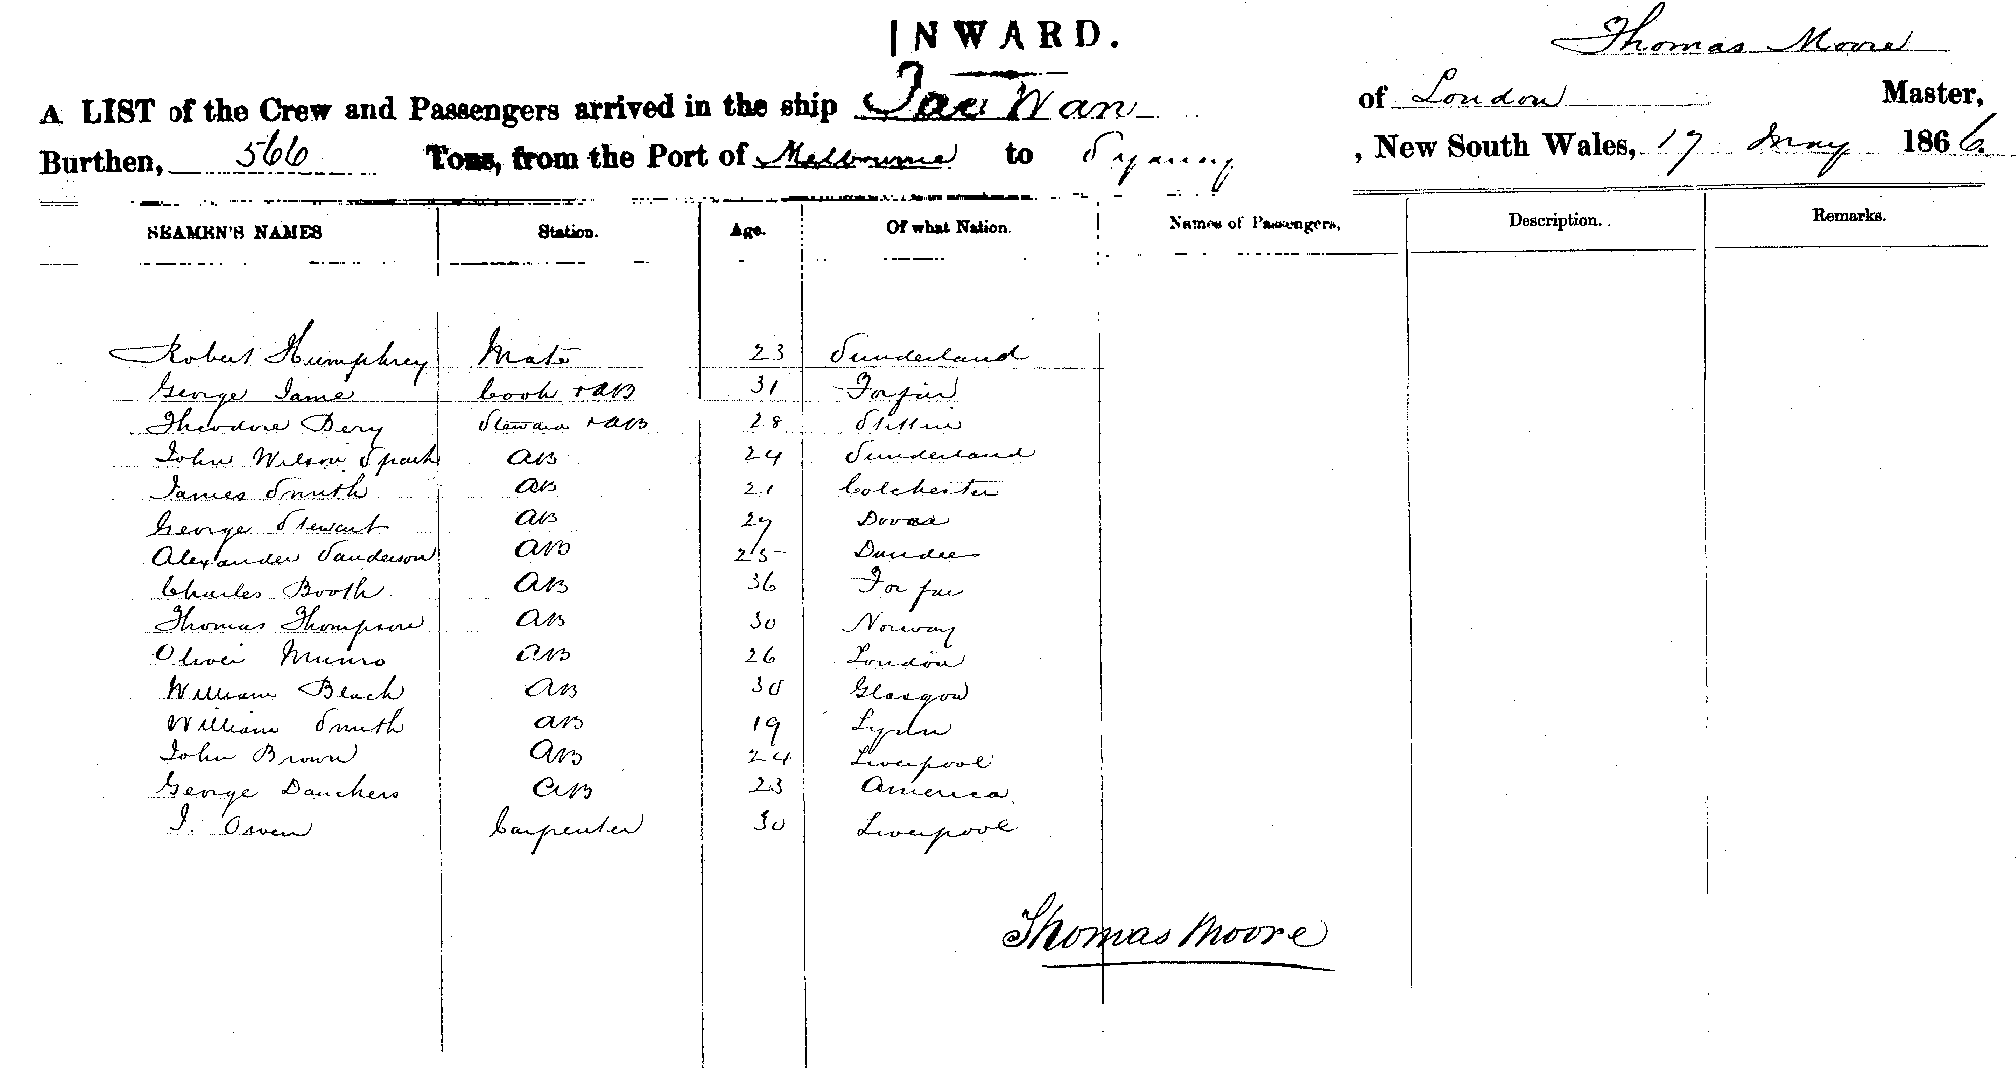 INWARD.
Thomas Moore
A LIST of the Crew and Passengers arrived in the ship Tae Wan of London Master,
Burthen, 566 Tons, from the Port of Melbourne to Sydney, New South Wales, 17 May 1866.
SEAMEN'S NAMES Station. Age. Of what Nation. Names of Passengers, Description. Remarks.
Robert Humphrey Mate 23 Sunderland
George Jame Cook + AB 31 Forfar
Theodore Bery Steward + AB 28 Stettin
John Wilson Spark AB 24 Sunderland
James Smith AB 21 Colchester
George Stewart AB 27
Alexander Sanderson AB 25 Dundee
Charles Booth AB 36 Forfar
Thomas Thompson AB 30 Norway
Oliver Munro AB 26 London
William Black AB 30 Glasgow
William Smith AB 19 Lynn
John Brown AB 24 Liverpool
George Danchers AB 23 America
J. Owen Carpenter 30 Liverpool
Thomas Moore